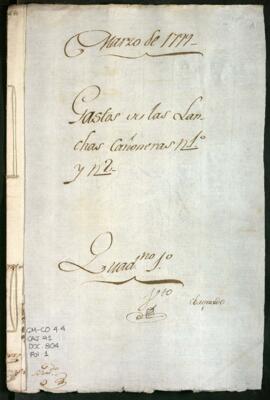 Marzo de 1777
Gastos en las Lan
chas Cañoneras nº 1º
y nº 2
Quadno 1º
GM-CO 4.4
CAJ 91
DOC. 804
Fol 1